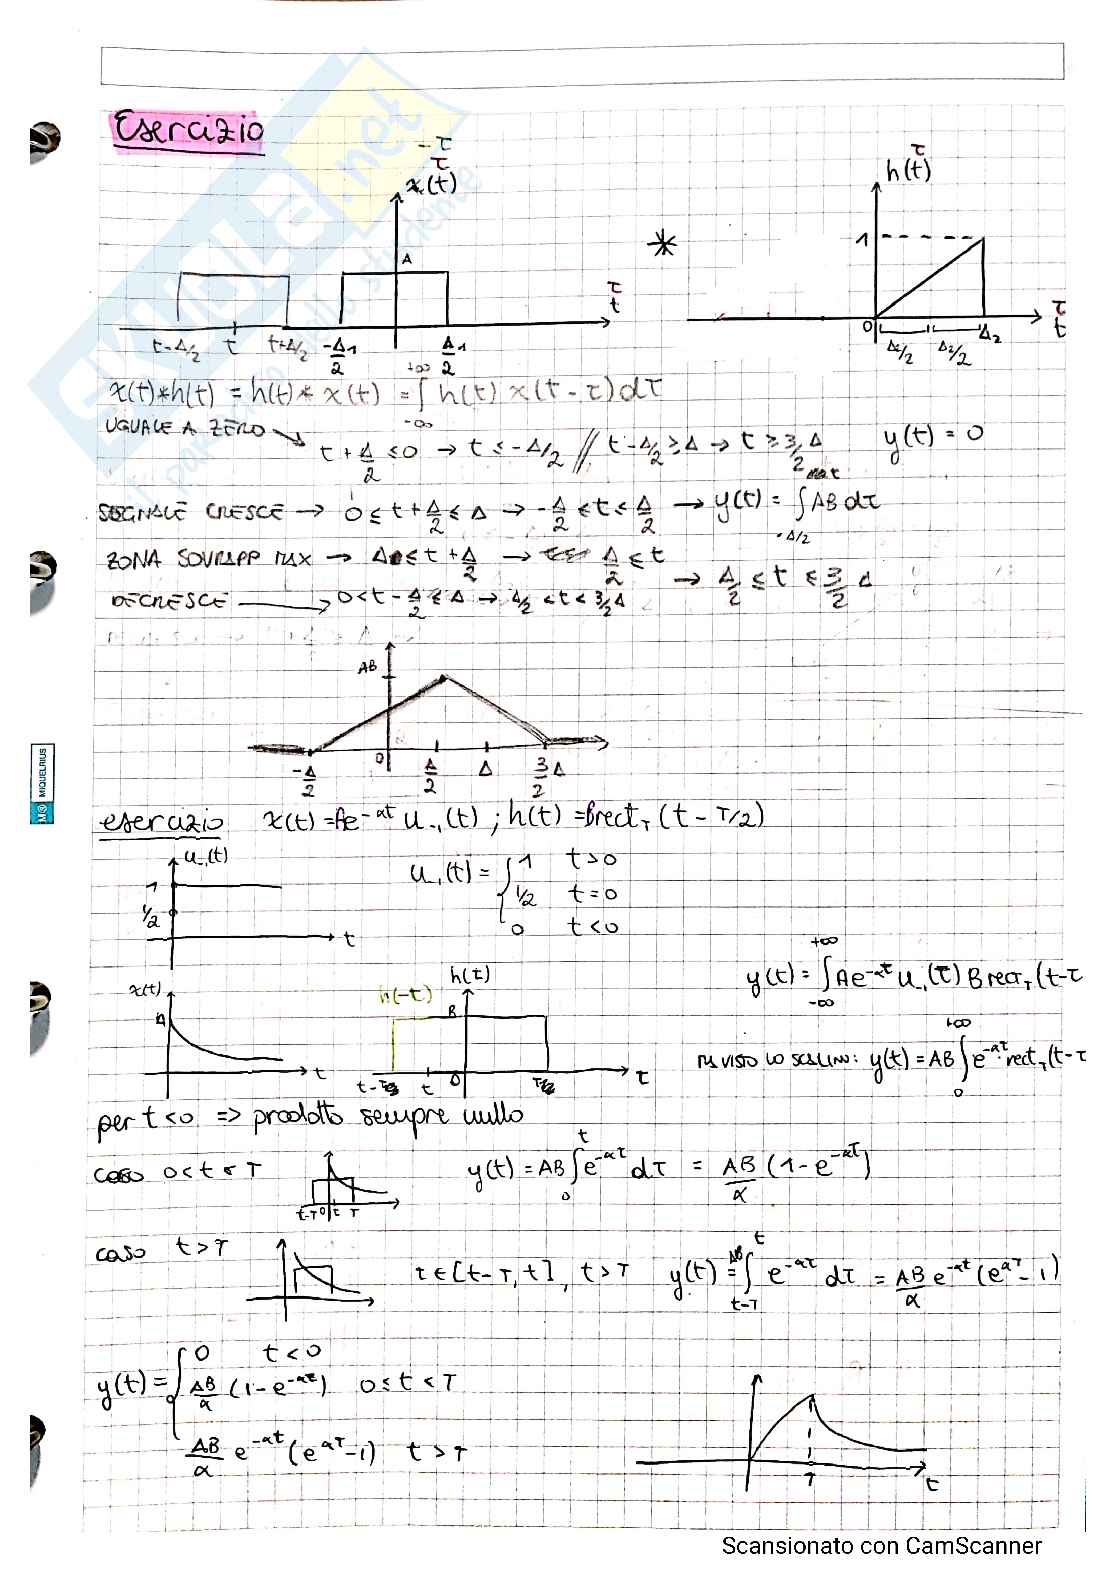 Esercizio
-τ
τ
x(t)
A
τ
t
t-Δ/2 t t+Δ/2 -Δ1/2 Δ1/2
*
τ
h(t)
1
0 Δ2/2 Δ2/2 Δ2
τ
t
x(t)*h(t) = h(t)* x(t) = ∫ h(t) x(t-τ)dτ
+∞
-∞
UGUALE A ZERO → t + Δ/2 ≤ 0 → t ≤ -Δ/2 // t-Δ/2 ≥ Δ → t ≥ 3/2 Δ y(t) = 0
SEGNALE CRESCE → 0 ≤ t + Δ/2 ≤ Δ → -Δ/2 ≤ t ≤ Δ/2 → y(t) = ∫ AB dτ
-Δ/2
ZONA SOVRAPP MAX → Δ ≤ t + Δ/2 → Δ/2 ≤ t
→ Δ/2 ≤ t ≤ 3/2 Δ
DECRESCE → 0 < t - Δ/2 ≤ Δ → Δ/2 < t < 3/2 Δ
AB
-Δ/2 0 Δ/2 Δ 3/2 Δ
esercizio x(t) = Ae^-αt u-1(t) ; h(t) = BrectT (t - T/2)
u-1(t)
1
1/2
t
u-1(t) = { 1 t>0
1/2 t=0
0 t<0
x(t)
A
t
h(-τ)
h(t)
B
t-T t 0 τ
y(t) = ∫ Ae^-ατ u-1(τ) B rectT (t-τ
+∞
-∞
HA VISTO LO SCALINO: y(t) = AB ∫ e^-ατ rectT (t-τ
+∞
0
per t<0 => prodotto sempre nullo
caso 0<t<T
t-T 0 t T
y(t) = AB ∫ e^-ατ dτ = AB/α (1-e^-αT)
t
0
caso t>T τ∈[t-T,t], t>T y(t) = AB ∫ e^-ατ dτ = AB/α e^-αt (e^αT - 1)
t
t-T
y(t) = { 0 t<0
AB/α (1-e^-αt) 0≤t<T
AB/α e^-αt (e^αT-1) t>T
T t
MIQUELRIUS
SKUOLA.net
Scansionato con CamScanner